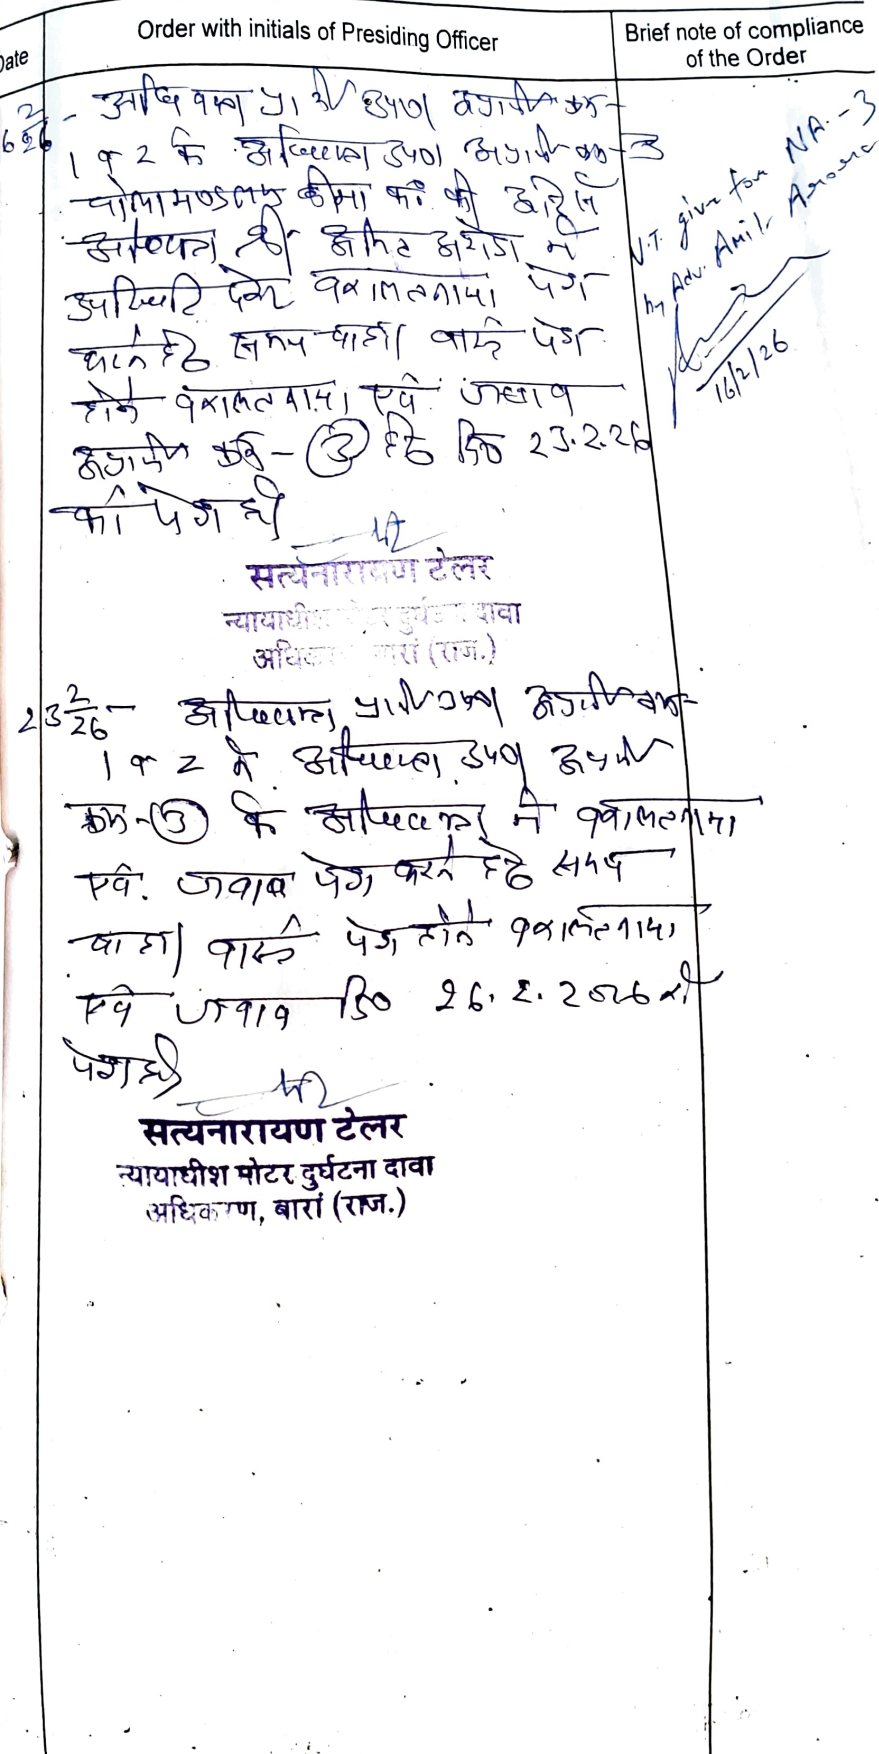 Date
Order with initials of Presiding Officer
Brief note of compliance
of the Order
16 2/26 - अधिवक्ता प्रार्थी उप0 अप्रार्थी क्रम-
1 व 2 के अधिवक्ता उप0 अप्रार्थी क्रम-3
चोलामण्डलम बीमा कं. की ओर से
अधिवक्ता श्री अमित अरोडा ने
उपस्थिति देकर वकालतनामा पेश
करने हेतु समय चाहा। वास्ते पेश
होने वकालतनामा एवं जवाब
अप्रार्थी क्रम-3 हेतु दि0 23.2.26
को पेश हो
सत्यनारायण टेलर
न्यायाधीश दुर्घटना दावा
अधिकरण बारां (राज.)
V.T. given for NA.-3
by Adv. Amit Arora
16/2/26
23 2/26 - अधिवक्ता प्रार्थी उप0 अप्रार्थी क्रम-
1 व 2 के अधिवक्ता उप0 अप्रार्थी
क्रम-3 के अधिवक्ता ने वकालतनामा
एवं. जवाब पेश करने हेतु समय
चाहा। वास्ते पेश होने वकालतनामा
एवं जवाब दि0 26.2.2026 को
पेश हो
सत्यनारायण टेलर
न्यायाधीश मोटर दुर्घटना दावा
अधिकरण, बारां (राज.)